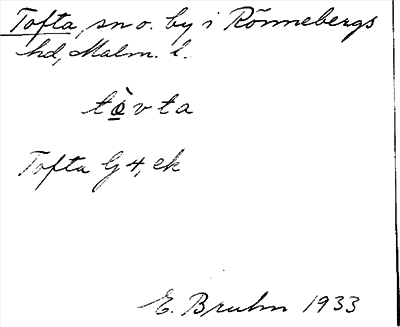 Tofta, sn o. by i Rönnebergs
hd, Malm. l.
tò̱vta
Tofta G 4, ek
E. Bruhn 1933